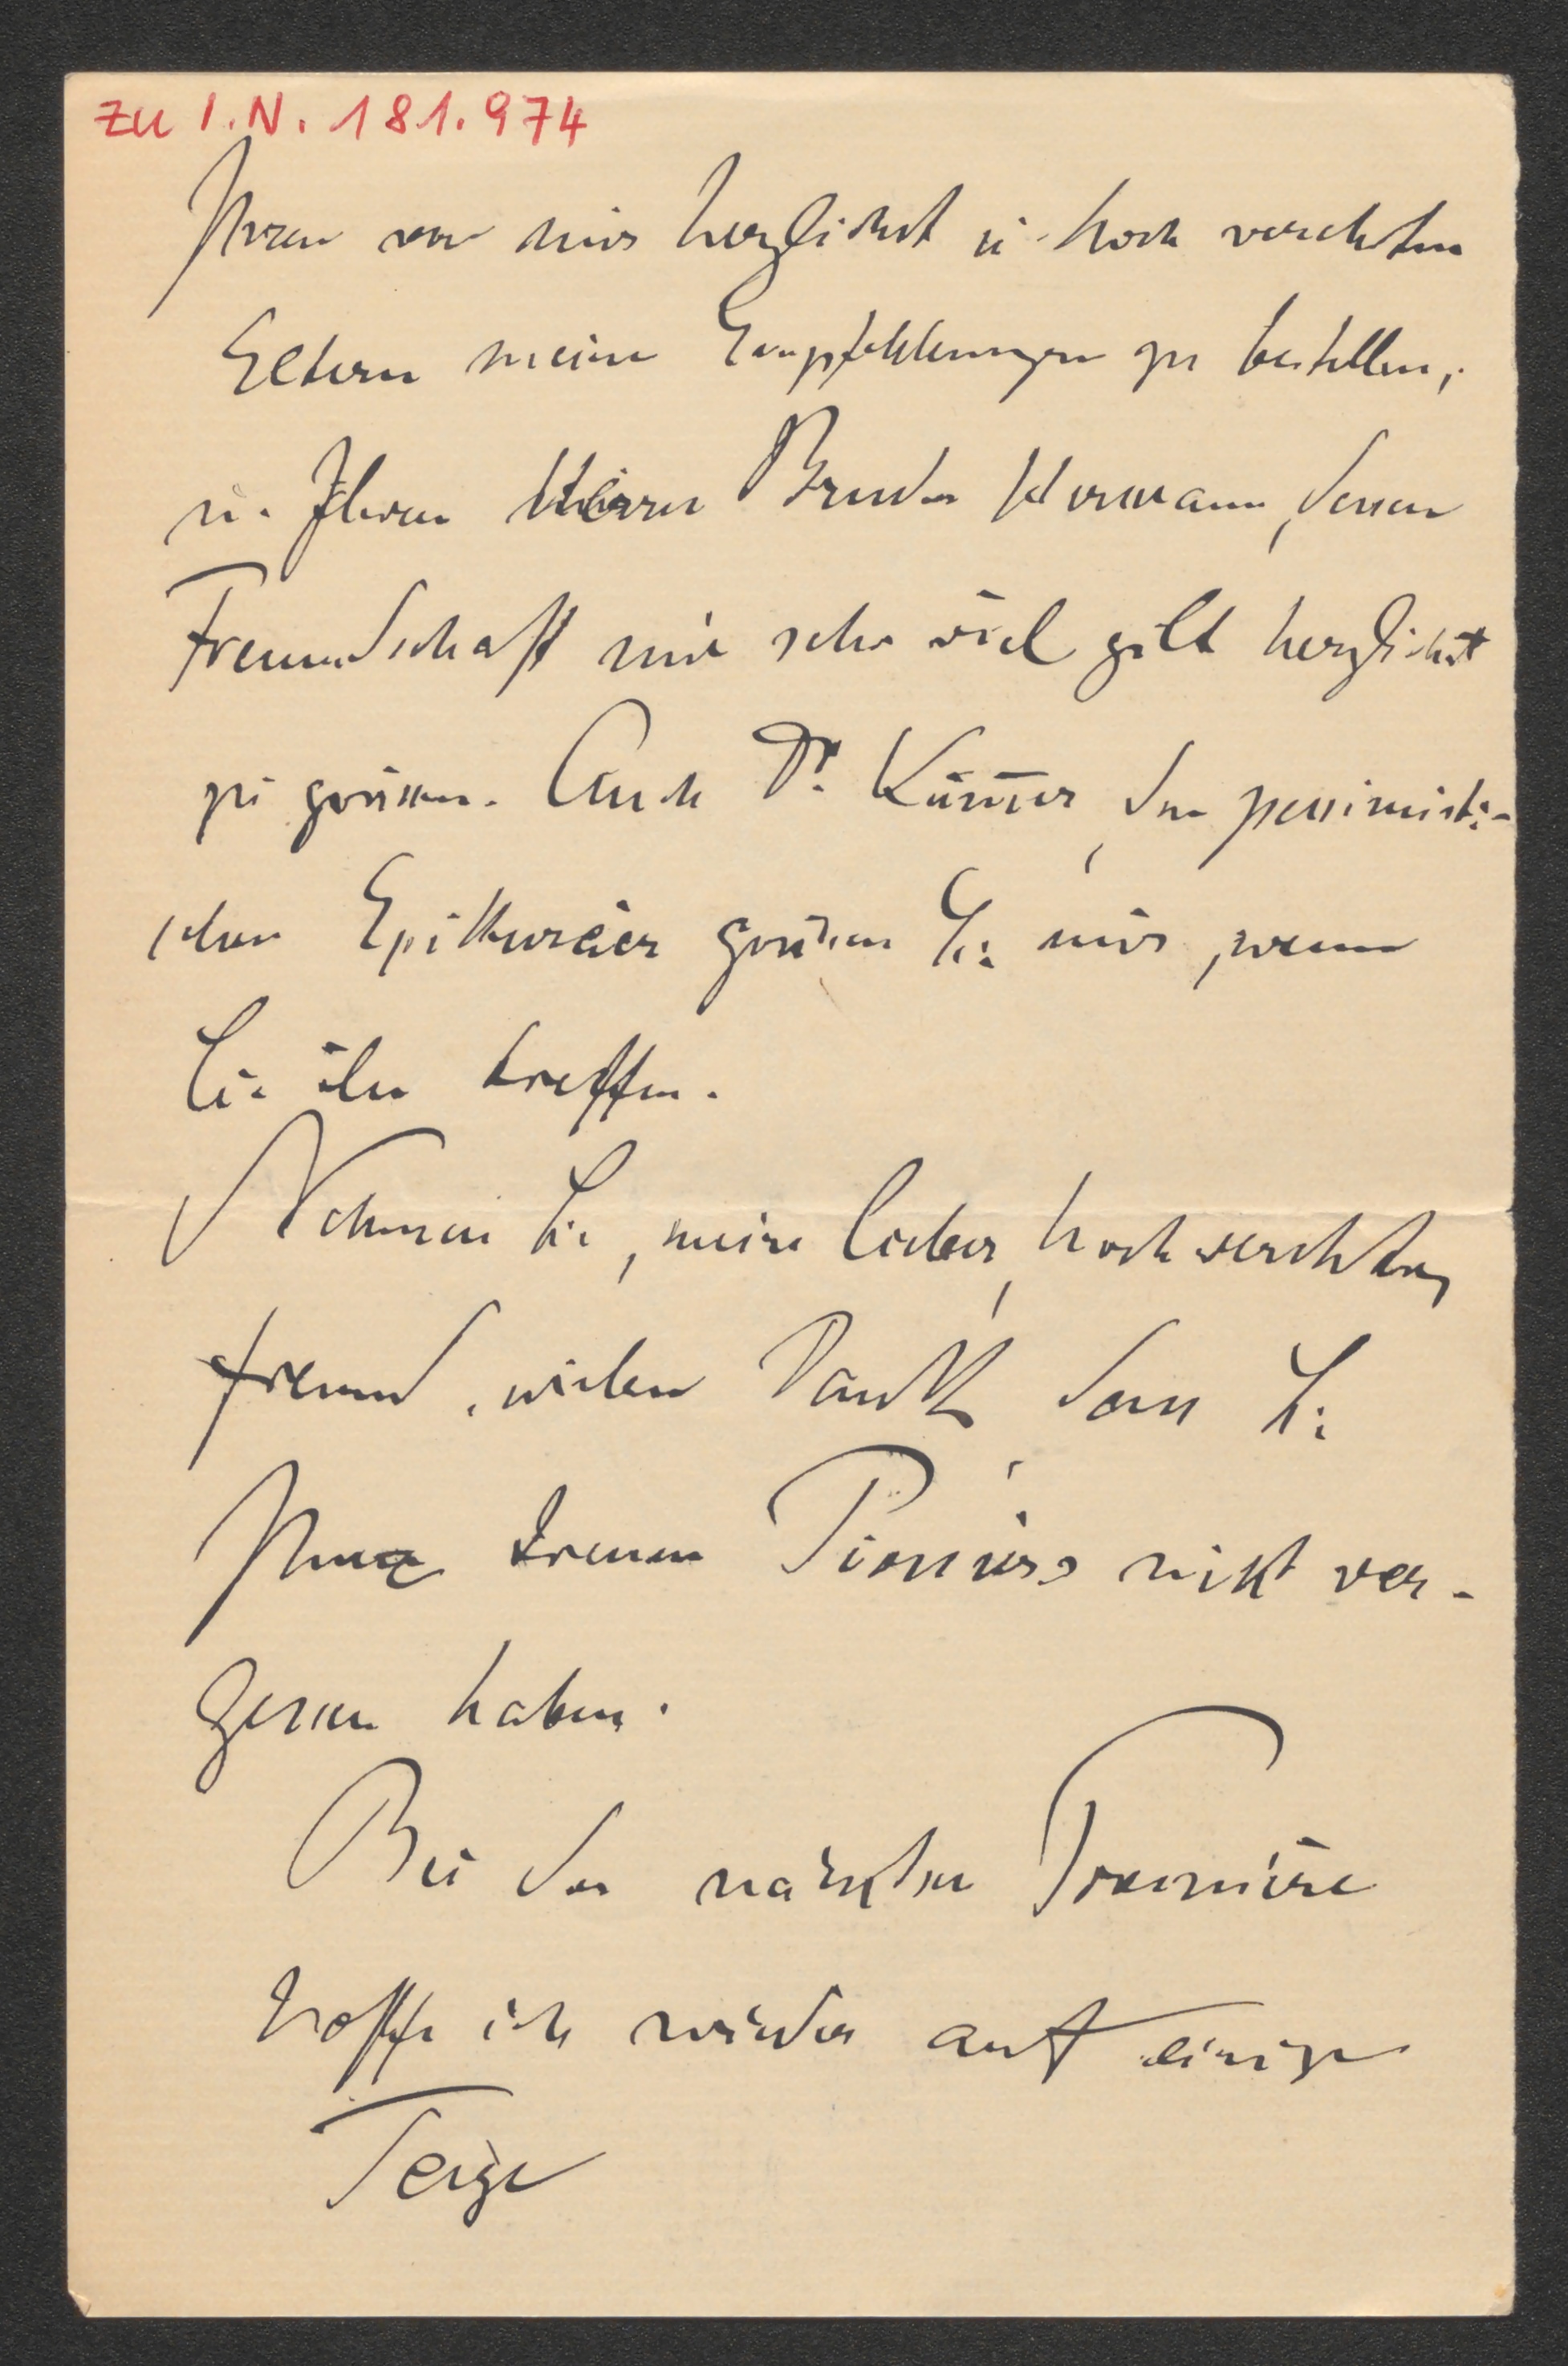 zu I.N. 181.974
Ihren von mir herzlichst u. hoch verehrten
Eltern meine Empfehlungen zu bestellen,
u. Ihren Herrn Bruder Hermann, dessen
Freundschaft mir sehr viel gilt herzlichst
zu grüssen. Auch Dr. dem pessimisti-
schen Epikuräer grüssen Sie mir, wenn
Sie ihn treffen.
Nehmen Sie, mein lieber, hochverehrter
Freund, vielen Dank, dass Sie
Ihres treuen Pioniers nicht ver-
gessen haben.
Bei der nächsten Premiere
hoffe ich wieder auf einige
Tage